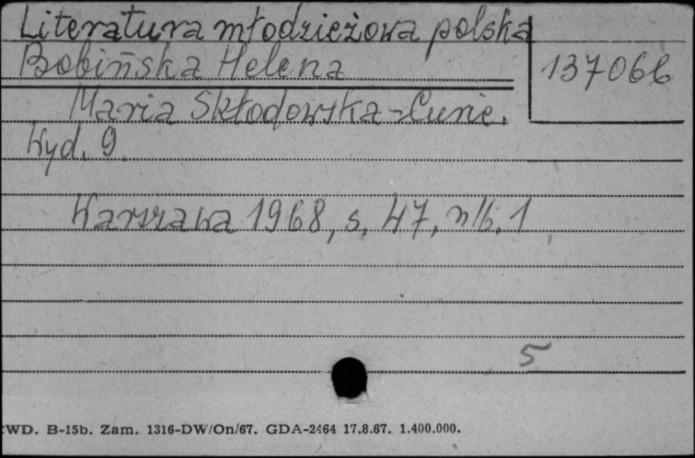 Literatura młodzieżowa polska
Bobińska Helena
137066
Maria Skłodowska-Curie.
Wyd. 9.
Warszawa 1968, s. 47, nlb. 1
5
WD. B-15b. Zam. 1316-DW/On/67. GDA-2464 17.8.67. 1.400.000.